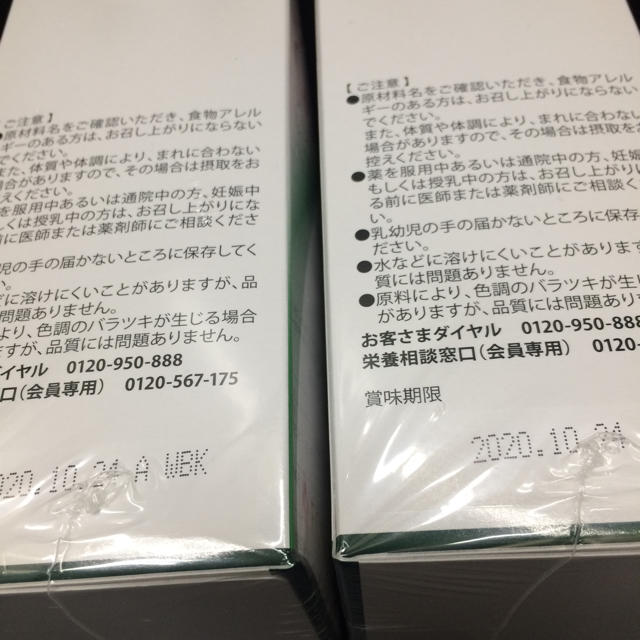 ご注意】
原材料名をご確認いただき、食物アレル
ギーのある方は、お召し上がりにならない
でください。
また、体質や体調により、まれに合わない
場合がありますので、その場合は摂取をお
控えください。
を服用中あるいは通院中の方、妊娠中
くは授乳中の方は、お召し上がりにな
前に医師または薬剤師にご相談くださ
児の手の届かないところに保存してく
どに溶けにくいことがありますが、品
は問題ありません。
より、色調のバラツキが生じる場合
ますが、品質には問題ありません。
ダイヤル 0120-950-888
口（会員専用） 0120-567-175
020.10.24 A WBK
【ご注意】
●原材料名をご確認いただき、食物アレル
ギーのある方は、お召し上がりにならない
でください。
また、体質や体調により、まれに合わない
場合がありますので、その場合は摂取を
控えください。
●薬を服用中あるいは通院中の方、妊娠
もしくは授乳中の方は、お召し上がりに
る前に医師または薬剤師にご相談くだ
い。
●乳幼児の手の届かないところに保存
ださい。
●水などに溶けにくいことがあります
質には問題ありません。
●原料により、色調のバラツキが生じ
がありますが、品質には問題ありま
お客さまダイヤル 0120-950-888
栄養相談窓口（会員専用） 0120-
賞味期限
2020.10.24